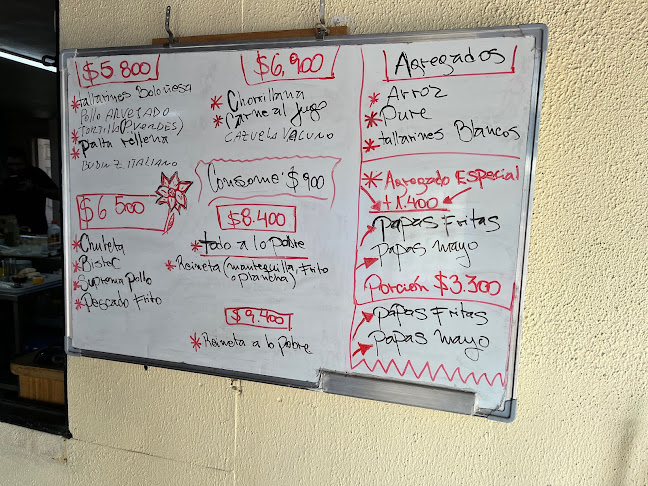 $5800
tallarines Boloñesa
Pollo ARVEJADO
TORTILLA (P VERDES)
Palta rellena
BUDIN Z ITALIANO
$6 500
Chuleta
Bistec
Suprema Pollo
Pescado Frito
$6,900
Chorrillana
Carne al Jugo
CAZUELA VACUNO
Consome $900
$8.400
todo a lo pobre
Reineta (mantequilla, Frito
o plancha)
$9.400
Reineta a lo pobre
Agregados
Arroz
Pure
tallarines Blancos
Agregado ESPECIAL
+1.400
Papas Fritas
Papas mayo
Porción $3.300
Papas Fritas
Papas mayo